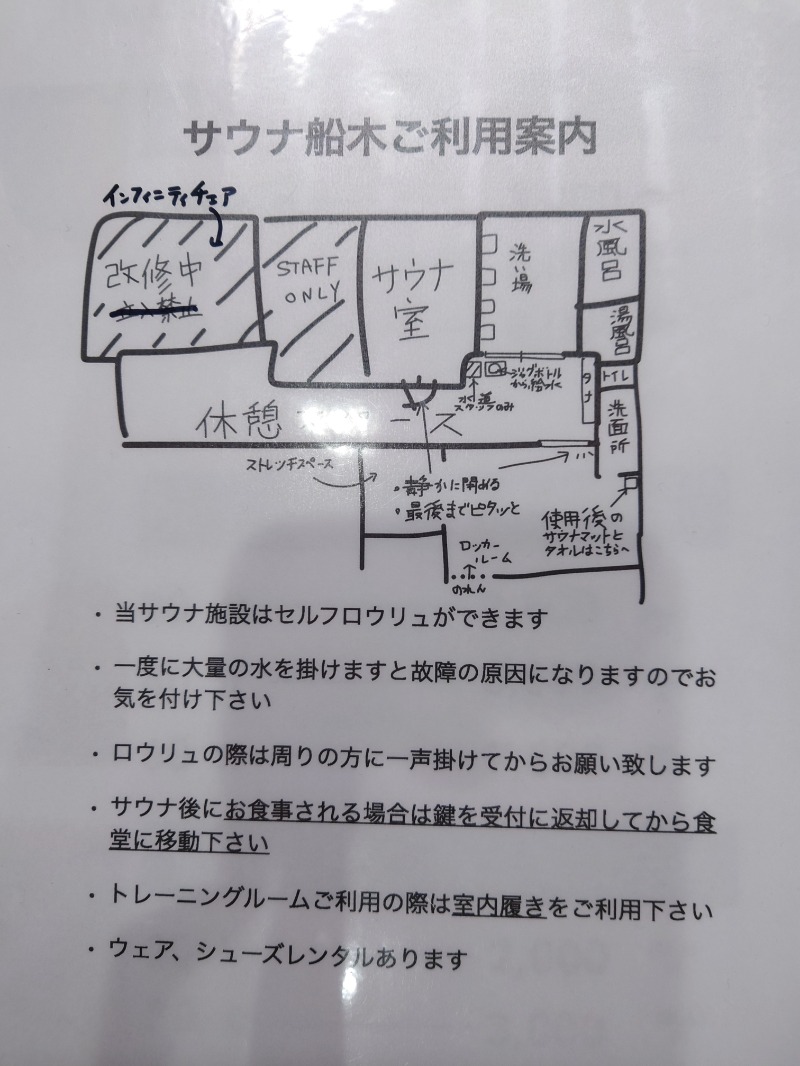 サウナ船木ご利用案内
インフィニティチェア
改修中
立入禁止
STAFF
ONLY
サウナ
室
洗い場
水風呂
湯風呂
トイレ
洗面所
タナ
ジャグボトル
から給水
水道
スタッフのみ
休憩スペース
ストレッチスペース
・静かに閉める
・最後までピタッと
使用後の
サウナマットと
タオルはこちらへ
ロッカー
ルーム
のれん
・当サウナ施設はセルフロウリュができます
・一度に大量の水を掛けますと故障の原因になりますのでお
気を付け下さい
・ロウリュの際は周りの方に一声掛けてからお願い致します
・サウナ後にお食事される場合は鍵を受付に返却してから食
堂に移動下さい
・トレーニングルームご利用の際は室内履きをご利用下さい
・ウェア、シューズレンタルあります